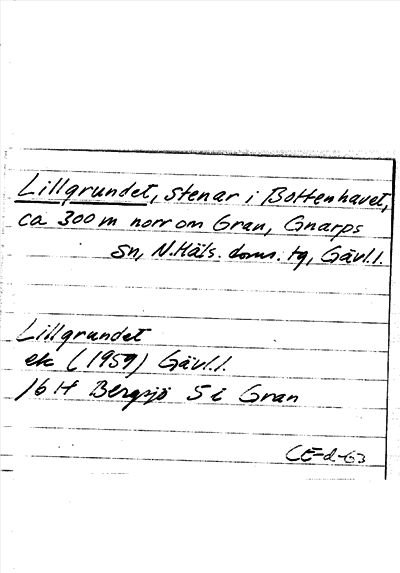 Lillgrundet, stenar i Bottenhavet,
ca 300 m norr om Gran, Gnarps
sn, N. Häls. doms. tg, Gävl. l.
Lillgrundet
ek (1959) Gävl. l.
16 H Bergsjö 5 i Gran